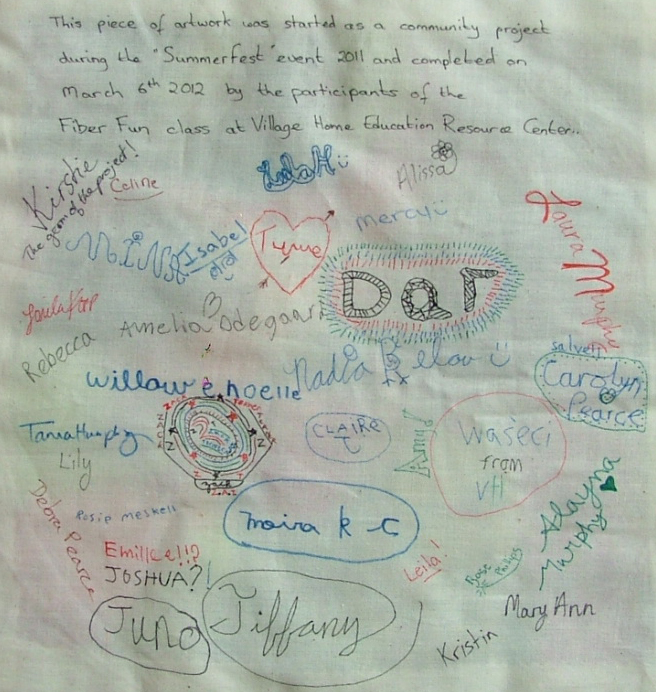 This piece of artwork was started as a community project
during the "Summerfest" event 2011 and completed on
March 6th 2012 by the participants of the
Fiber Fun class at Village Home Education Resource Center..
Kirstie
The germ of the project!
Celine
Alissa
mercy
Isabel
Laura Murphy
Amelia Bodegaard
Rebecca
Nadia Below
willow & noelle
salvete
Carolyn Pearce
CLAIRE
T
Amy!
Waseci
from
VH
Tanna Murphy
Lily
ZACK
Alayna Murphy
Debra Pearce
Rosie meskell
moira k-c
Emilee!!?
JOSHUA?!
Leila!
Rose Philips
Mary Ann
Juno
Tiffany
Kristin